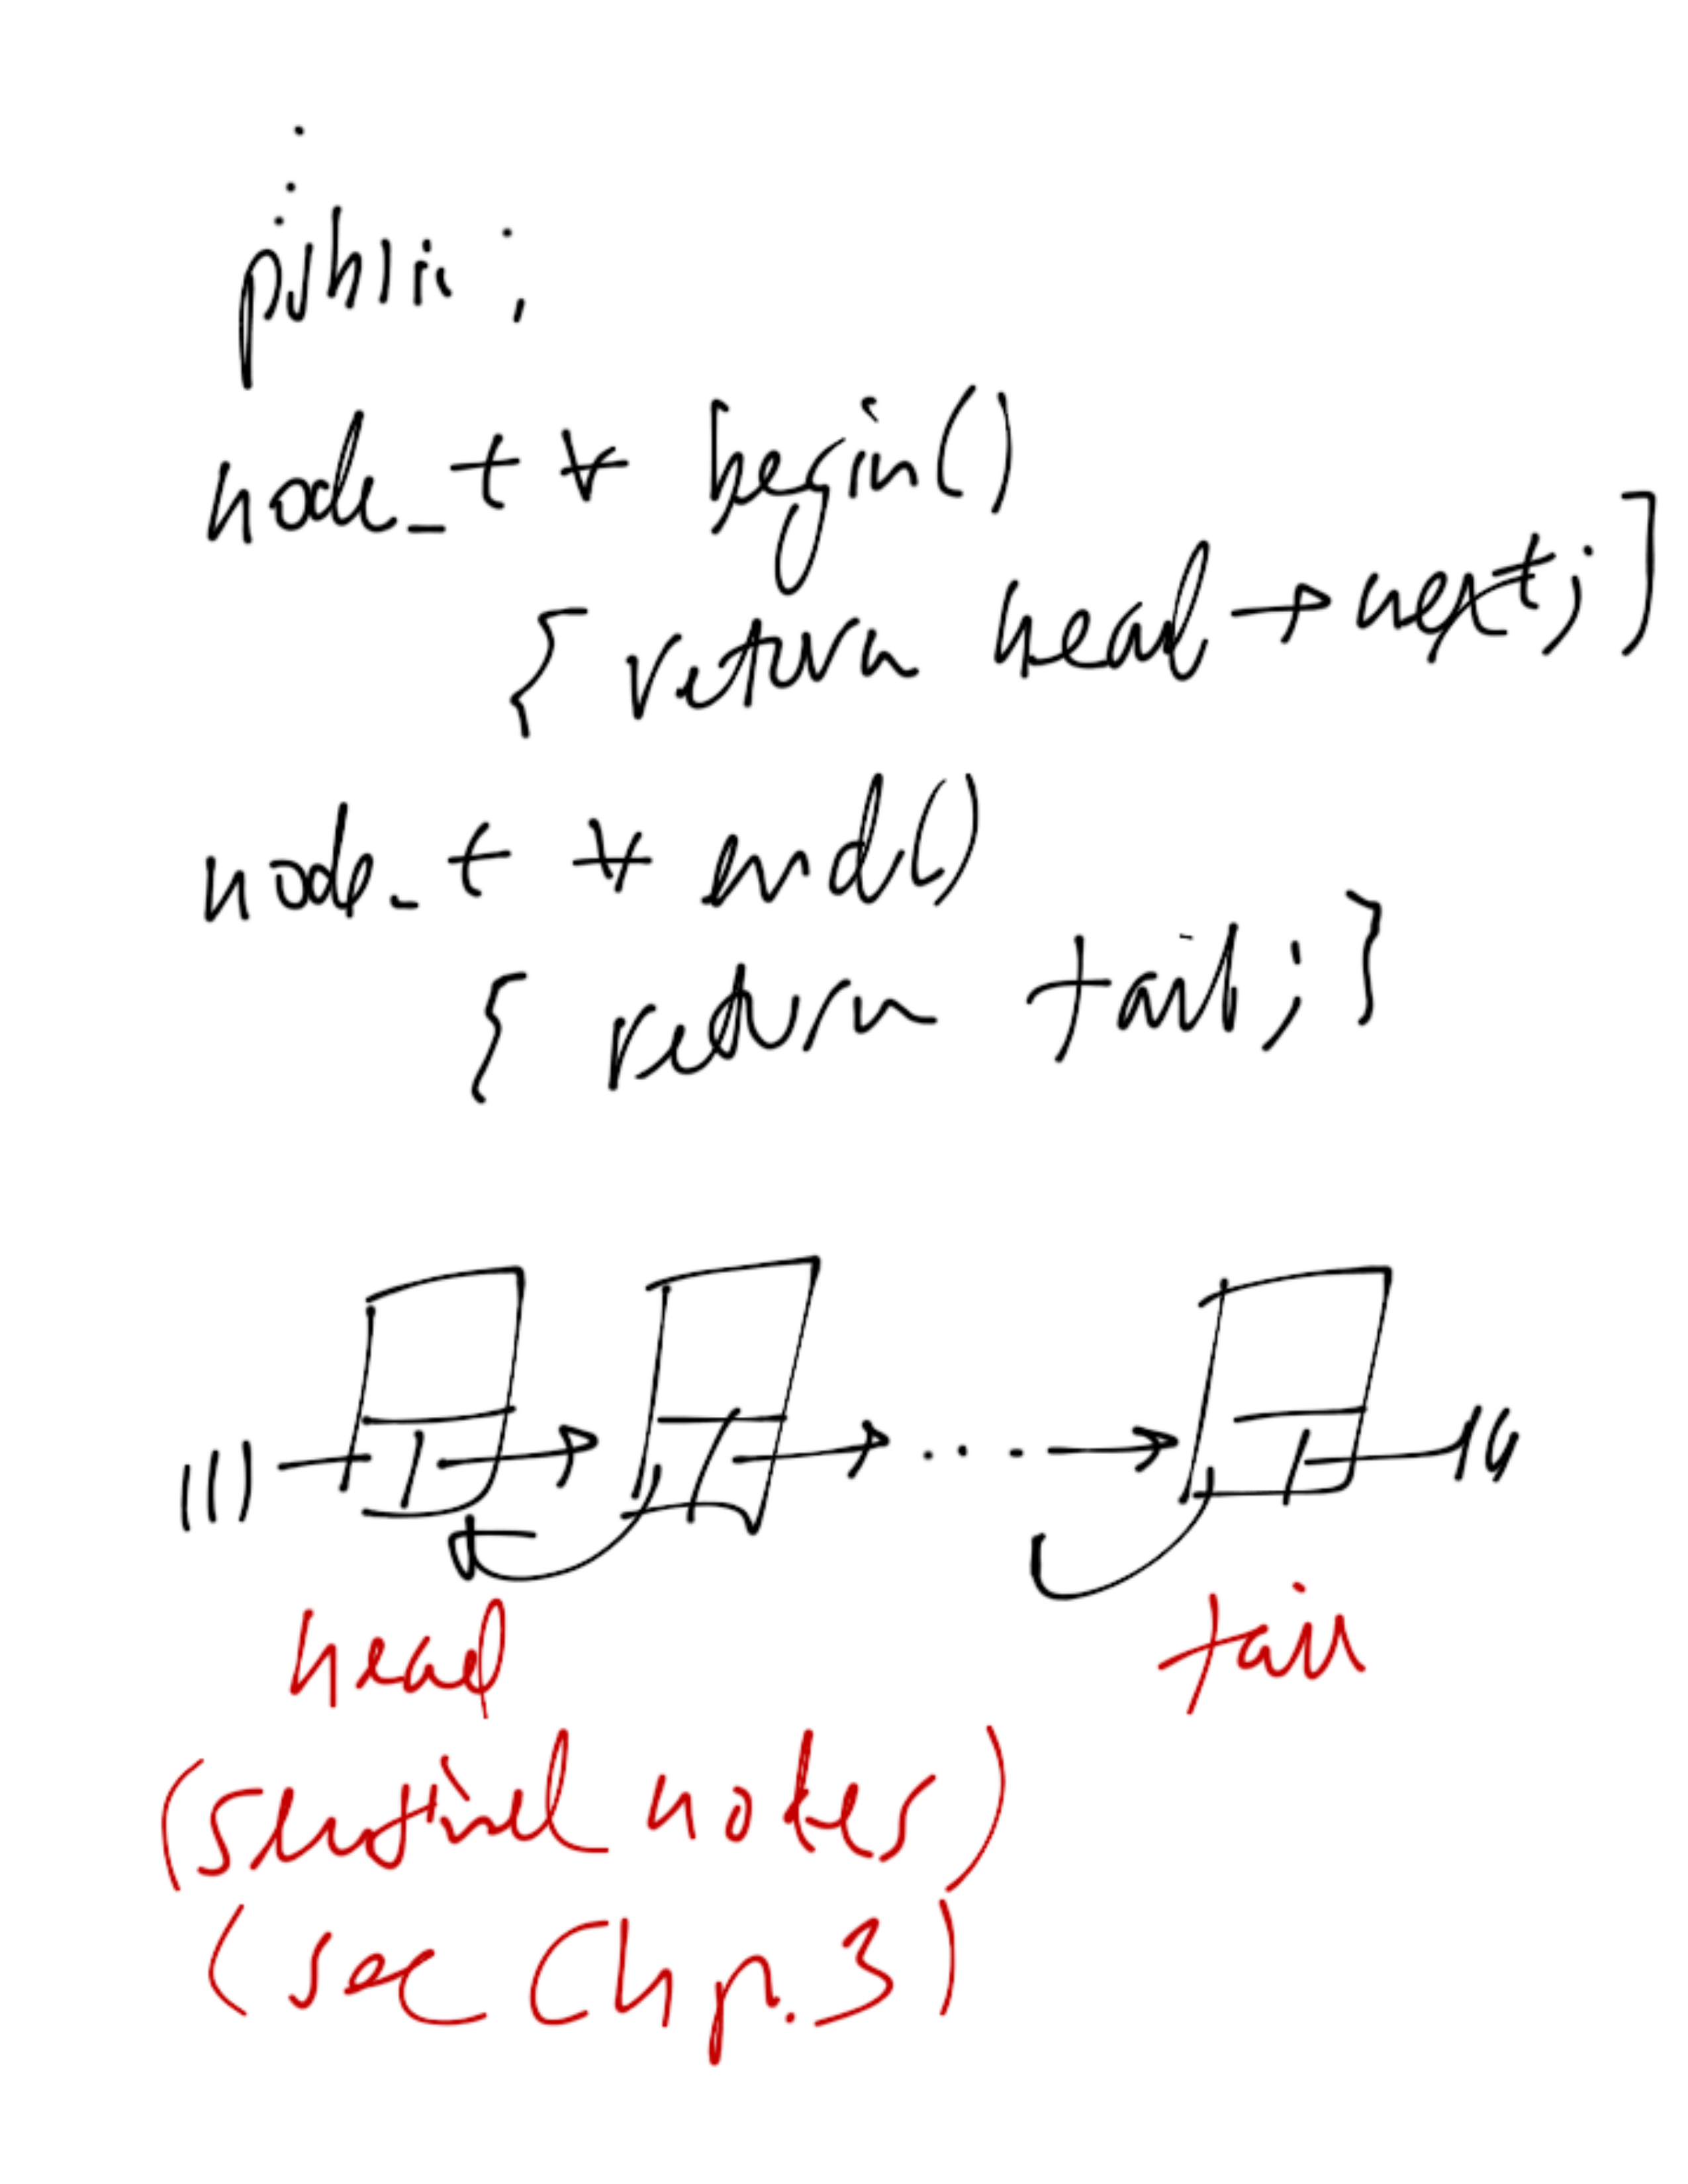 ⋮
public:
node_t * begin()
{ return head → next; }
node_t * end()
{ return tail; }
...
head tail
(sentinel notes)
(see Chp. 3)